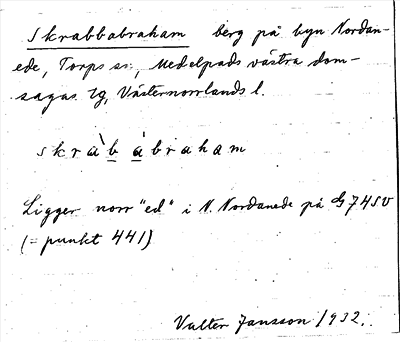 Skrabbabraham berg på byn Nordan-
ede, Torps sn, Medelpads västra dom-
sagas tg, Västernorrlands l.
skràb ábraham
Ligger norr "ed" i N. Nordanede på G 74 SV
(= punkt 441)
Valter Jansson 1932.